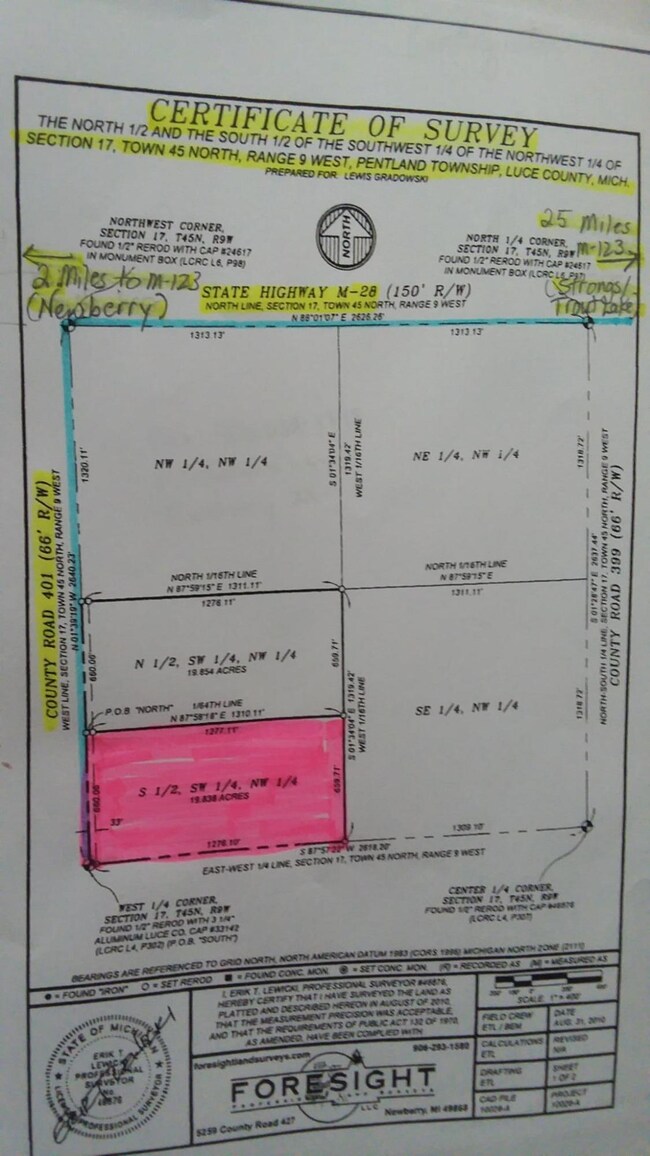 CERTIFICATE OF SURVEY
THE NORTH 1/2 AND THE SOUTH 1/2 OF THE SOUTHWEST 1/4 OF THE NORTHWEST 1/4 OF
SECTION 17, TOWN 45 NORTH, RANGE 9 WEST, PENTLAND TOWNSHIP, LUCE COUNTY, MICH.
PREPARED FOR: LEWIS GRADOWSKI
NORTHWEST CORNER,
SECTION 17, T45N, R9W
FOUND 1/2" REROD WITH CAP #24617
IN MONUMENT BOX (LCRC L6, P98)
NORTH
25 Miles
M-123
NORTH 1/4 CORNER,
SECTION 17, T45N, R9W
FOUND 1/2" REROD WITH CAP #24617
IN MONUMENT BOX (LCRC L6, P97)
2 Miles to M-123
(Newberry)
(Strongs/
Trout Lake
STATE HIGHWAY M-28 (150' R/W)
NORTH LINE, SECTION 17, TOWN 45 NORTH, RANGE 9 WEST
N 88°01'07" E 2626.26'
1313.13'
1313.13'
NW 1/4, NW 1/4
NE 1/4, NW 1/4
1320.11'
S 01°34'04" E
1319.42'
WEST 1/16TH LINE
1318.72'
COUNTY ROAD 401 (66' R/W)
WEST LINE, SECTION 17, TOWN 45 NORTH, RANGE 9 WEST
N 01°39'19" W 2640.23'
S 01°28'47" E 2637.44'
NORTH-SOUTH 1/4 LINE, SECTION 17, TOWN 45 NORTH, RANGE 9 WEST
COUNTY ROAD 399 (66' R/W)
NORTH 1/16TH LINE
N 87°59'15" E 1311.11'
1278.11'
NORTH 1/16TH LINE
N 87°59'15" E
1311.11'
N 1/2, SW 1/4, NW 1/4
19.854 ACRES
660.06'
659.71'
P.O.B "NORTH"
1/64TH LINE
N 87°58'18" E 1310.11'
1277.11'
S 01°34'04" E 1319.42'
WEST 1/16TH LINE
SE 1/4, NW 1/4
1318.72'
S 1/2, SW 1/4, NW 1/4
19.838 ACRES
660.06'
659.71'
33'
1276.10'
1309.10'
W 2618.20'
EAST-WEST 1/4 LINE, SECTION 17, TOWN 45 NORTH, RANGE 9 WEST
WEST 1/4 CORNER,
SECTION 17, T45N, R9W
FOUND 1/2" REROD WITH 3 1/4"
ALUMINUM LUCE CO. CAP #33142
(LCRC L4, P302) (P.O.B. "SOUTH")
CENTER 1/4 CORNER,
SECTION 17, T45N, R9W
FOUND 1/2" REROD WITH CAP #46876
(LCRC L4, P307)
BEARINGS ARE REFERENCED TO GRID NORTH, NORTH AMERICAN DATUM 1983 (CORS 1996) MICHIGAN NORTH ZONE (2111)
= FOUND "IRON" = SET REROD = FOUND CONC. MON. = SET CONC. MON. (R) = RECORDED AS (M) = MEASURED AS
I, ERIK T. LEWICKI, PROFESSIONAL SURVEYOR #46876,
HEREBY CERTIFY THAT I HAVE SURVEYED THE LAND AS
PLATTED AND DESCRIBED HEREON IN AUGUST OF 2010,
THAT THE MEASUREMENT PRECISION WAS ACCEPTABLE,
AND THAT THE REQUIREMENTS OF PUBLIC ACT 132 OF 1970,
AS AMENDED, HAVE BEEN COMPLIED WITH.
SCALE: 1" = 400'
FIELD CREW
ETL / BEM
DATE
AUG. 31, 2010
CALCULATIONS
ETL
REVISED
N/A
DRAFTING
ETL
SHEET
1 OF 2
CAD FILE
10029-A
PROJECT
10029-A
STATE OF MICHIGAN
ERIK T.
LEWICKI
PROFESSIONAL
SURVEYOR
No.
46876
LICENSED PROFESSIONAL SURVEYOR
foresightlandsurveys.com
906-293-1580
FORESIGHT
PROFESSIONAL LAND SURVEYS
LLC
5259 County Road 427
Newberry, MI 49868